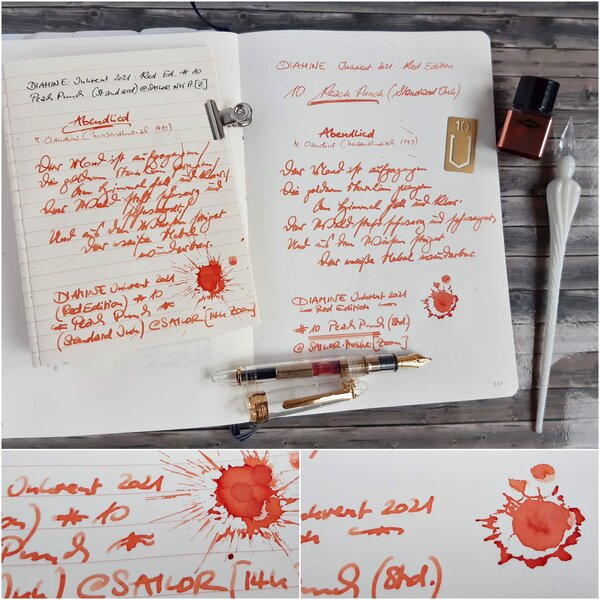 DIAMINE · Inkvent 2021 · Red Ed. # 10
Peach Punch (Standard) @ SAILOR
Abendlied
M. Claudius (Musenalmanach 1779)
Der Mond ist aufgegangen/
Die goldnen Sternlein prangen/
Am Himmel hell und klar/
Der Wald steht schwarz und
schweiget/
Und aus den Wiesen steiget
Der weiße Nebel
wunderbar.
DIAMINE Inkvent 2021
(Red Edition) # 10
Peach Punch
(Standard Ink) @SAILOR [14k Zoom]
DIAMINE · Inkvent 2021 · Red Edition
10 Peach Punch (Standard Ink)
Abendlied
M. Claudius (Musenalmanach 1779)
Der Mond ist aufgegangen
Die goldnen Sternlein prangen
Am Himmel hell und klar.
Der Wald steht schwarz und schweiget,
Und aus den Wiesen steiget
Der weiße Nebel wunderbar.
DIAMINE Inkvent 2021
Red Edition
# 10 Peach Punch (Std.)
@ SAILOR [Zoom]
10
247
Inkvent 2021
# 10
Punch
Ink) @SAILOR [14k
2021
(Std.)